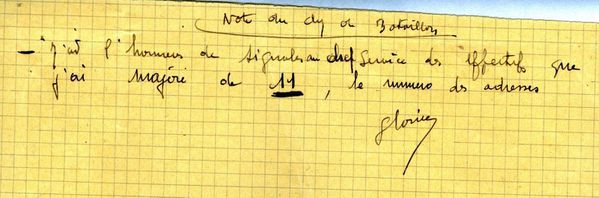 Note du cdt de Bataillon
- j'ai l'honneur de signaler au chef Service des Effectifs que
j'ai majoré de 11, le numero des adresses